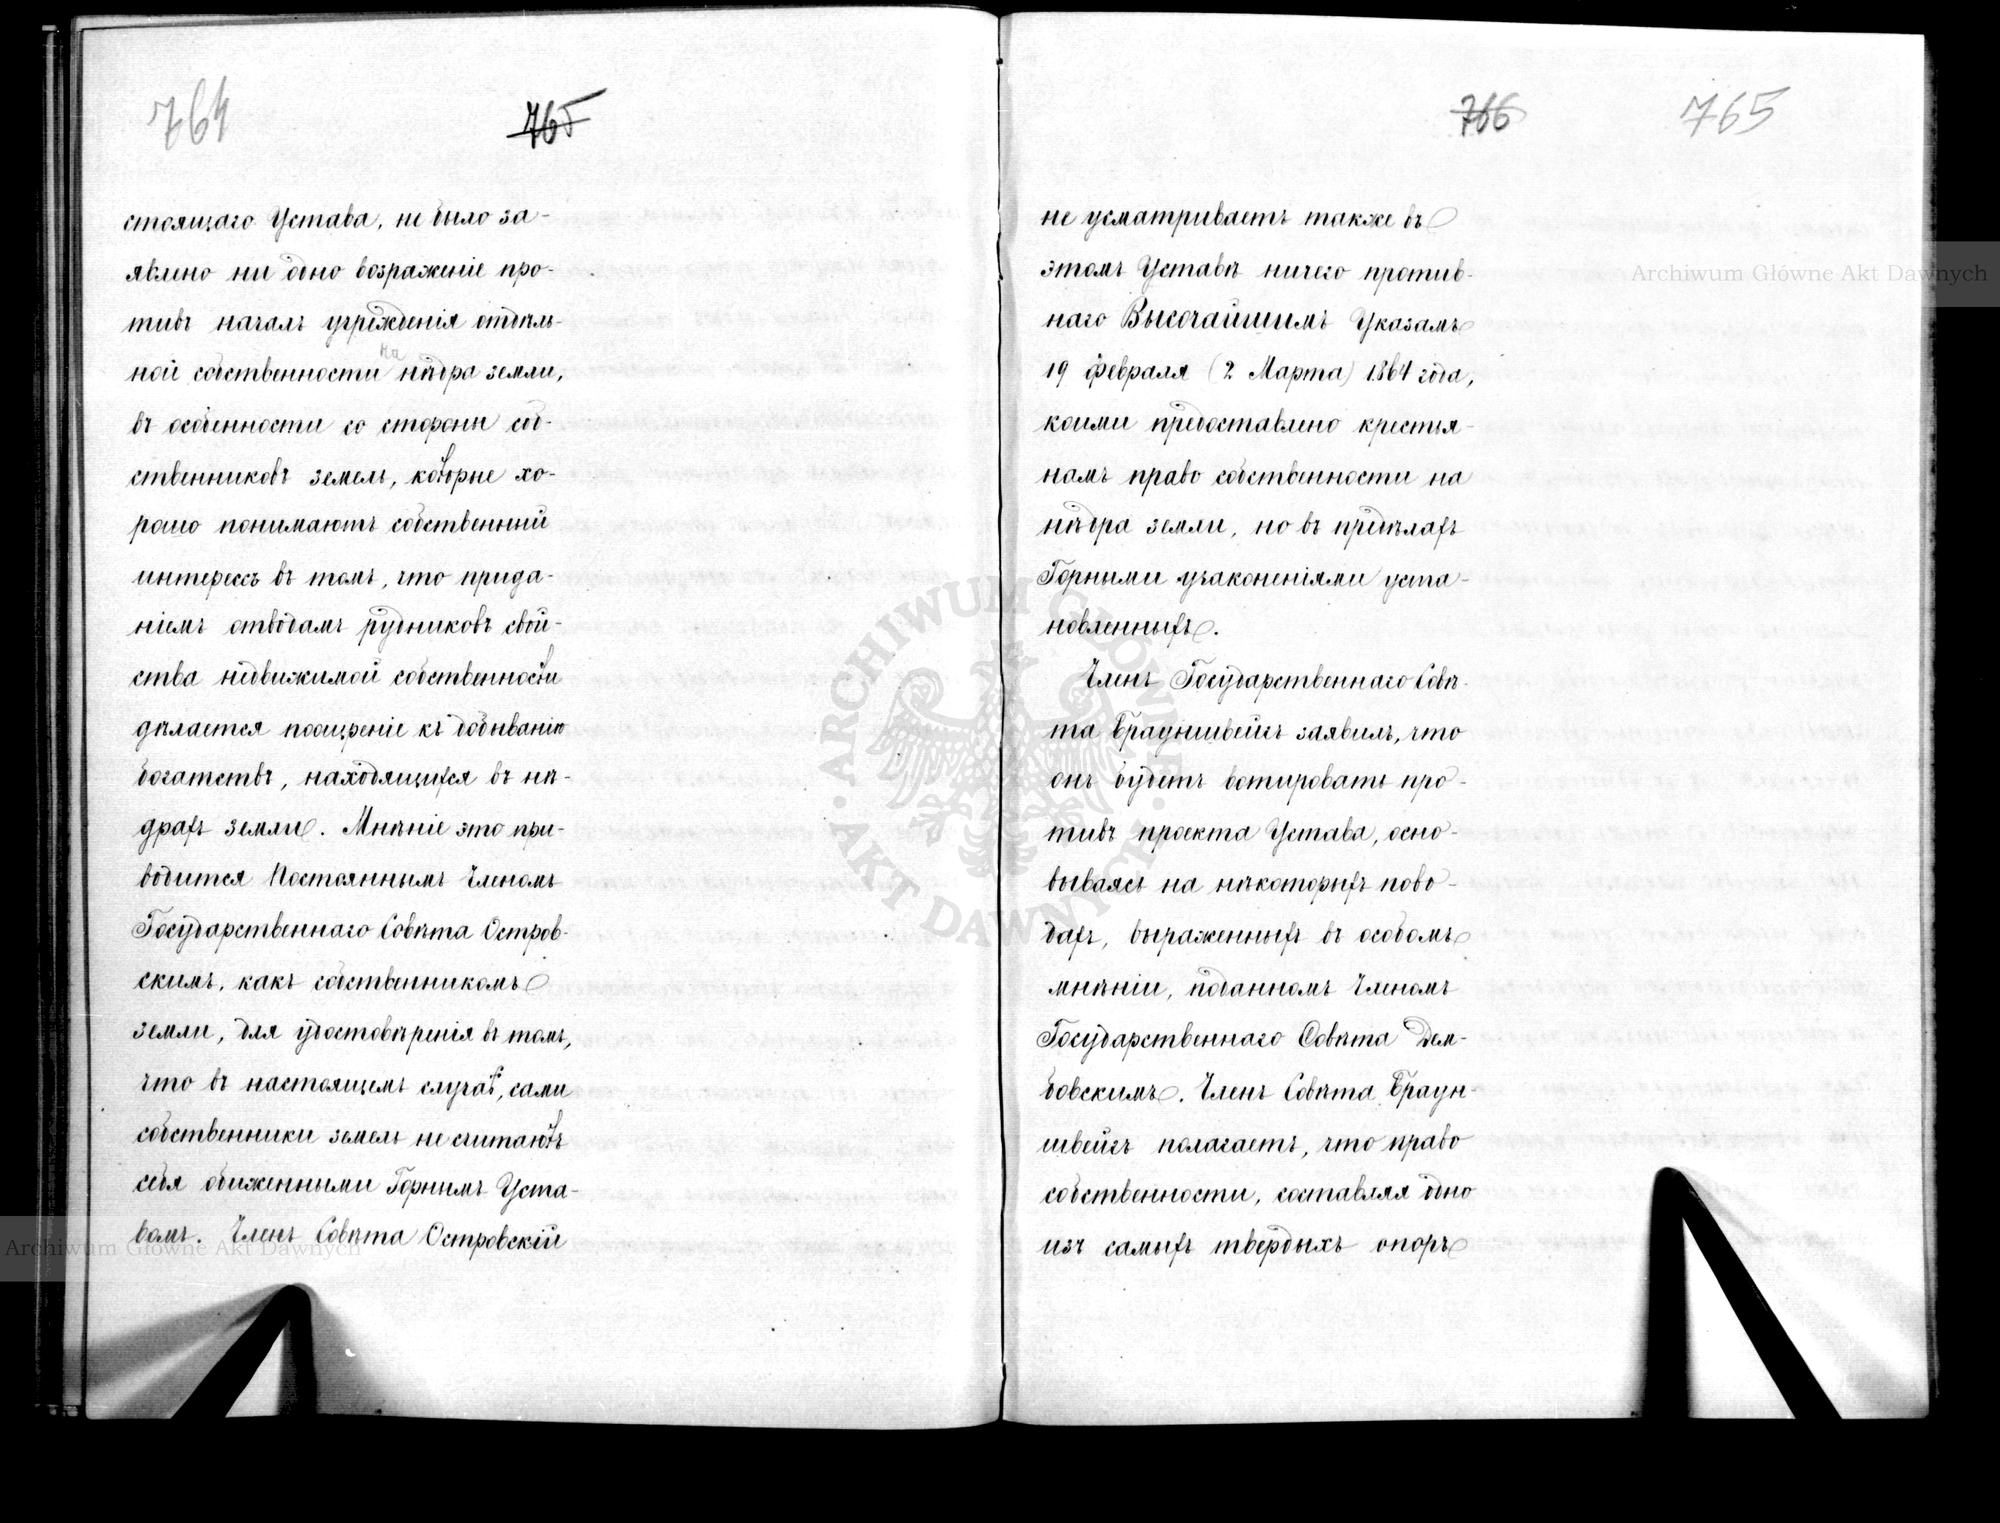 764
765
стоящаго Устава, не было за-
явлено ни одно возраженіе про-
тивъ началъ учрежденія отдѣль-
ной собственности на нѣдра земли,
въ особенности со стороны соб-
ственниковъ земель, которые хо-
рошо понимаютъ собственный
интересъ въ томъ, что прида-
ніемъ отводамъ рудниковъ свой-
ства недвижимой собственности
дѣлается поощреніе къ добыванію
богатствъ, находящихся въ нѣ-
драхъ земли. Мнѣніе это при-
водится Постояннымъ Членомъ
Государственнаго Совѣта Остров-
скимъ, какъ собственникомъ
земли, для удостовѣренія въ томъ,
что въ настоящемъ случаѣ, сами
собственники земель не считаютъ
себя обиженными Горнымъ Уста-
вомъ. Членъ Совѣта Островскій
766
765
не усматриваетъ также въ
этомъ Уставѣ ничего против-
наго Высочайшимъ Указамъ
19 февраля (2 Марта) 1864 года,
коими предоставлено крестья-
намъ право собственности на
нѣдра земли, но въ предѣлахъ
Горными узаконеніями уста-
новленныхъ.
Членъ Государственнаго Совѣ-
та Брауншвейгъ заявилъ, что
онъ будетъ вотировать про-
тивъ проекта Устава, осно-
вываясь на нѣкоторыхъ пово-
дахъ, выраженныхъ въ особомъ
мнѣніи, поданномъ Членомъ
Государственнаго Совѣта Дем-
бовскимъ. Членъ Совѣта Браун-
швейгъ полагаетъ, что право
собственности, составляя одно
изъ самыхъ твердыхъ опоръ
Archiwum Główne Akt Dawnych
Archiwum Główne Akt Dawnych
ARCHIWUM GŁÓWNE
AKT DAWNYCH